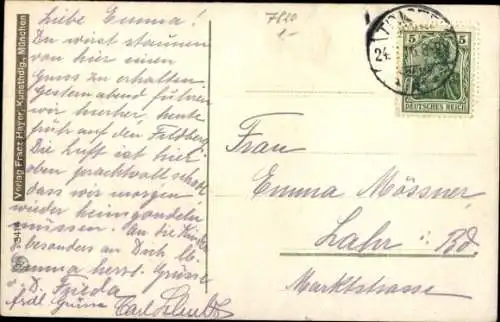 Liebe Emma!
Du wirst staunen
von hier einen
Gruss zu erhalten.
Gestern abend fuhren
wir hierher, heute
früh auf den Feldberg.
Die Luft ist hier
oben prachtvoll schade
dass wir morgen
wieder heimgondeln
müssen. An die Kinder
besonders an Dich lb.
Emma herzl. Grüsse
D. Frieda
Frdl. Grüsse Carl
7820
1-
24.
5 5
DEUTSCHES REICH
Frau
Emma Mössner
Lahr i. Bd.
Marktstrasse
Verlag Franz Hayer, Kunsthdlg., München